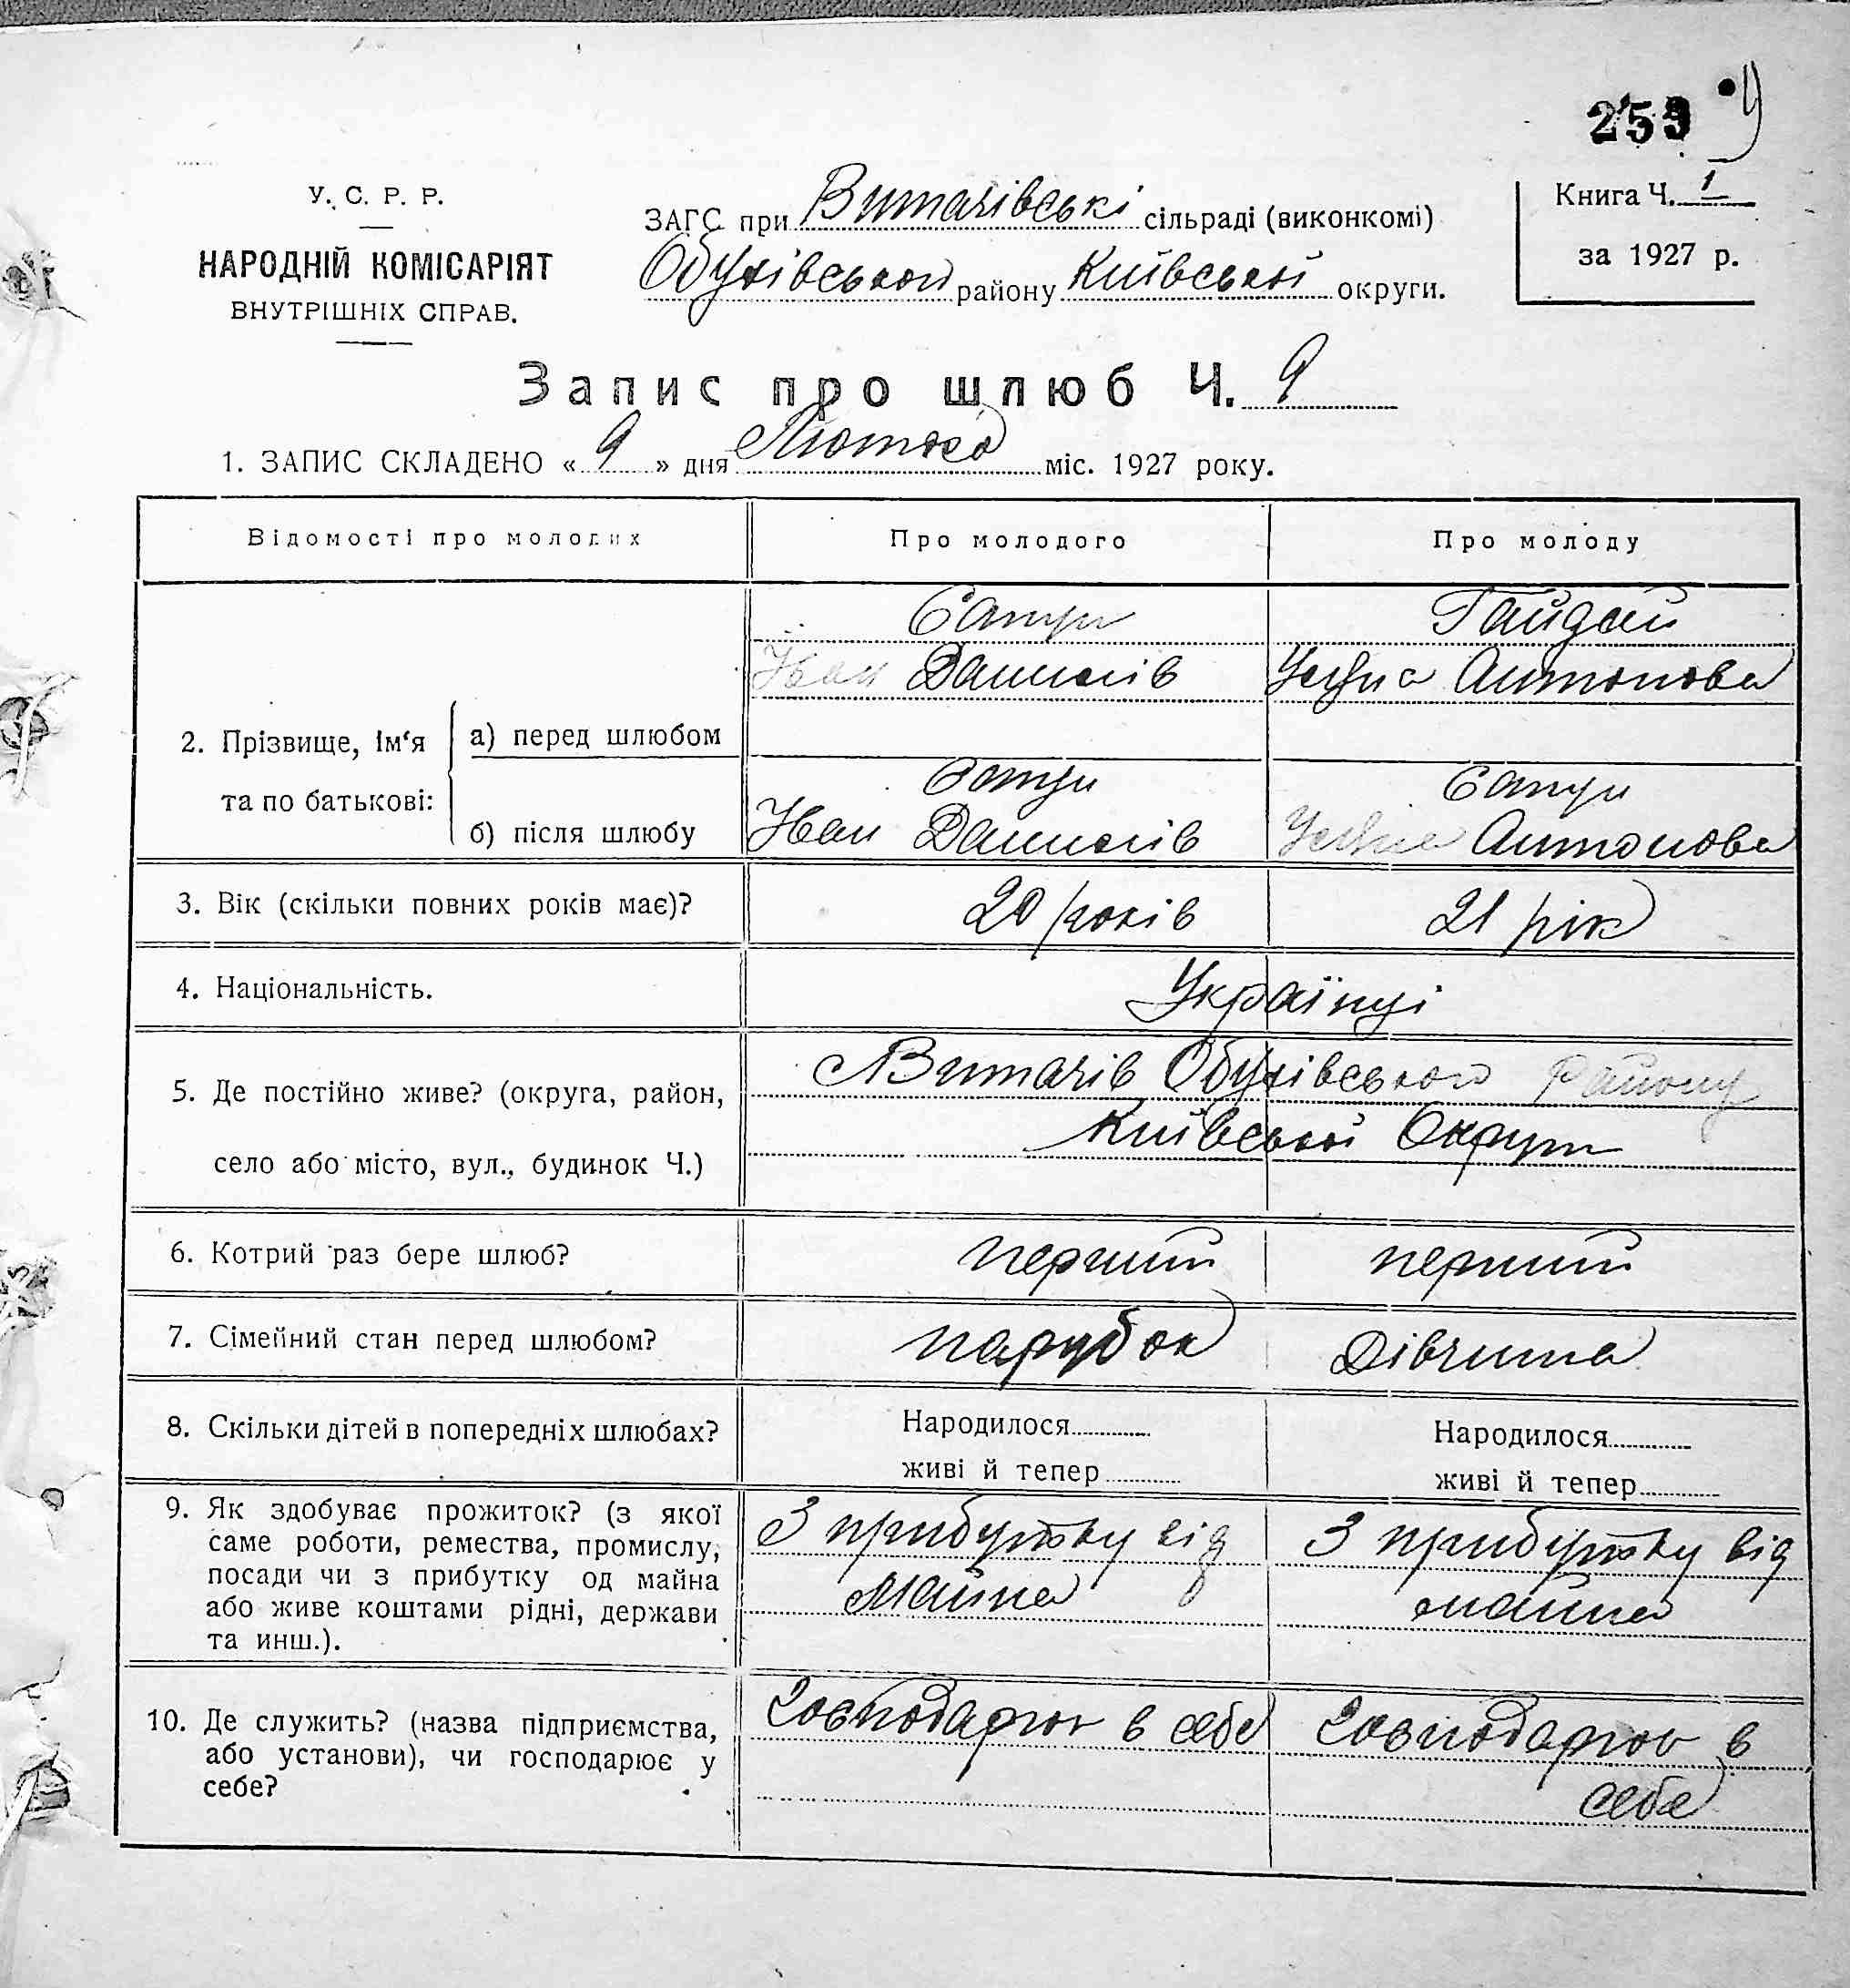 259 9
У. С. Р. Р.
НАРОДНІЙ КОМІСАРІЯТ
ВНУТРІШНІХ СПРАВ.
ЗАГС при Витачівські сільраді (виконкомі)
Обухівського району Київської округи.
Книга Ч. 1
за 1927 р.
Запис про шлюб Ч. 9
1. ЗАПИС СКЛАДЕНО « 9 » дня Лютого міс. 1927 року.
Відомості про молодих
Про молодого
Про молоду
2. Прізвище, Ім‘я та по батькові:
а) перед шлюбом
Іван Данилів
Гайдай
Антонова
б) після шлюбу
Іван Данилів
Антонова
3. Вік (скільки повних років має)?
20 років
21 рік
4. Національність.
Українці
5. Де постійно живе? (округа, район,
село або місто, вул., будинок Ч.)
Витачів Обухівського Району
Київської Округи
6. Котрий раз бере шлюб?
перший
перший
7. Сімейний стан перед шлюбом?
парубок
дівчина
8. Скільки дітей в попередніх шлюбах?
Народилося
живі й тепер
Народилося
живі й тепер
9. Як здобуває прожиток? (з якої
саме роботи, ремества, промислу,
посади чи з прибутку од майна
або живе коштами рідні, держави
та инш.).
З прибутку від
майна
З прибутку від
майна
10. Де служить? (назва підприємства,
або установи), чи господарює у
себе?
в себе
в
себе